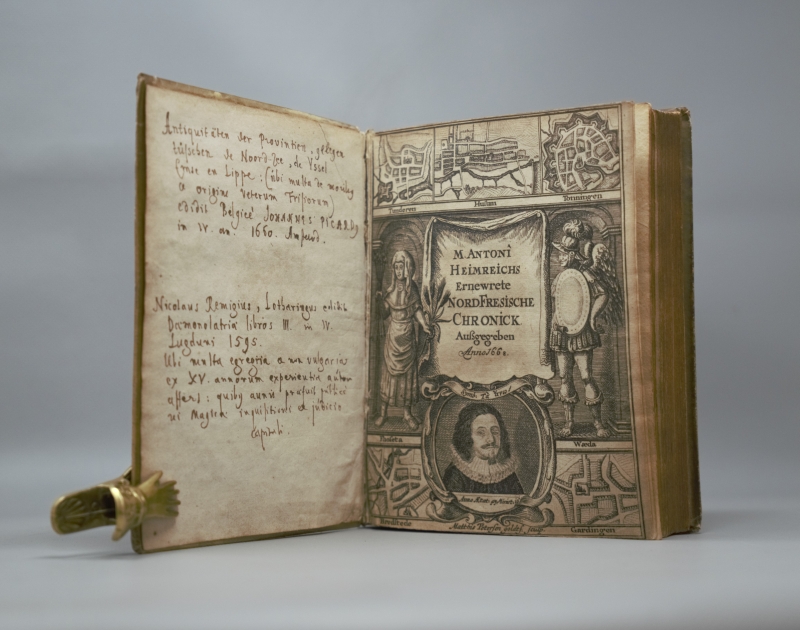 Antiquitäten der Provintien, gelegen
tüsschen de Noord-Zee, de Yssel
Emse en Lippe: Ubi multa de moribus
& origine veterum Frisiorum
edidit Belgicè JOHANNES PICARDT
in IV. an. 1660. Amsterd.
Nicolaus Remigius, Lotharingus edidit
Dæmonolatriæ libros III. in IV.
Lugduni 1595.
Ubi multa egregia & non vulgaria
ex XV. annorum experientia author
affert: quibus
rei Magicæ inquisitioni et judicio
capitali.
Tunderen
Husum
Tönningen
M. ANTONI
HEIMREICHS
Ernewrete
NORDFRESISCHE
CHRONICK
Außgegeben
Anno 166
Pallas
Wæda
Bredstede
Matthis Petersen
Gardingen